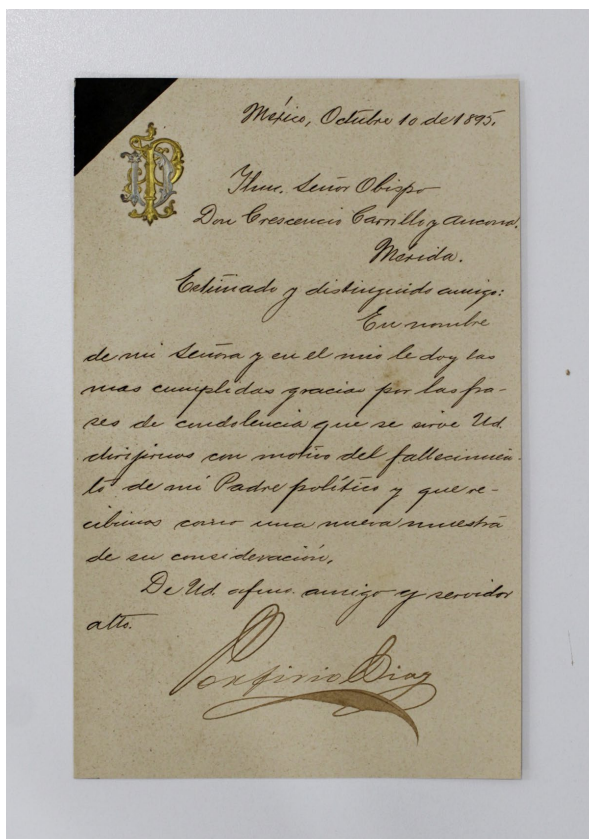 México, Octubre 10 de 1895.
PD
Ilmo. Señor Obispo
Don Crescencio Carrillo y Ancona.
Merida.
Estimado y distinguido amigo:
En nombre
de mi Señora y en el mio le doy las
mas cumplidas gracias por las fra-
ses de condolencia que se sirve Ud.
dirijirnos con motivo del fallecimien-
to de mi Padre político y que re-
cibimos como una nueva muestra
de su consideración.
De Ud. afmo. amigo y servidor
atto.
Porfirio Diaz